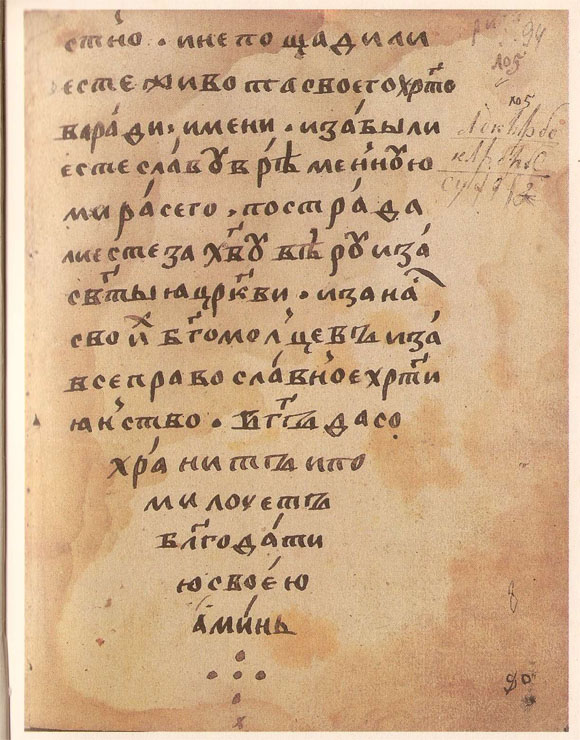 стно . и не по щадили
есте живо та своего хрⷭ҇то
ва ра́ди . имени . и за́были
есте сла́вꙋврѣ́ менную
ми ра́сего . постра́да
ли есте за хв҃ꙋ вѣ́ рꙋ и за́
свⷮ҇ы ꙗ црк҃ви . и за на́
свои́х бг҃омо́лщевъ и за́
все право сла́вное хрⷭ҇ти
ꙗн́ство . бг҃ъ да со
хра́ нитъ и по
милоуетъ
блг҃ода́ти
ю свое́ю
а́ми́нь
94
№5
№5